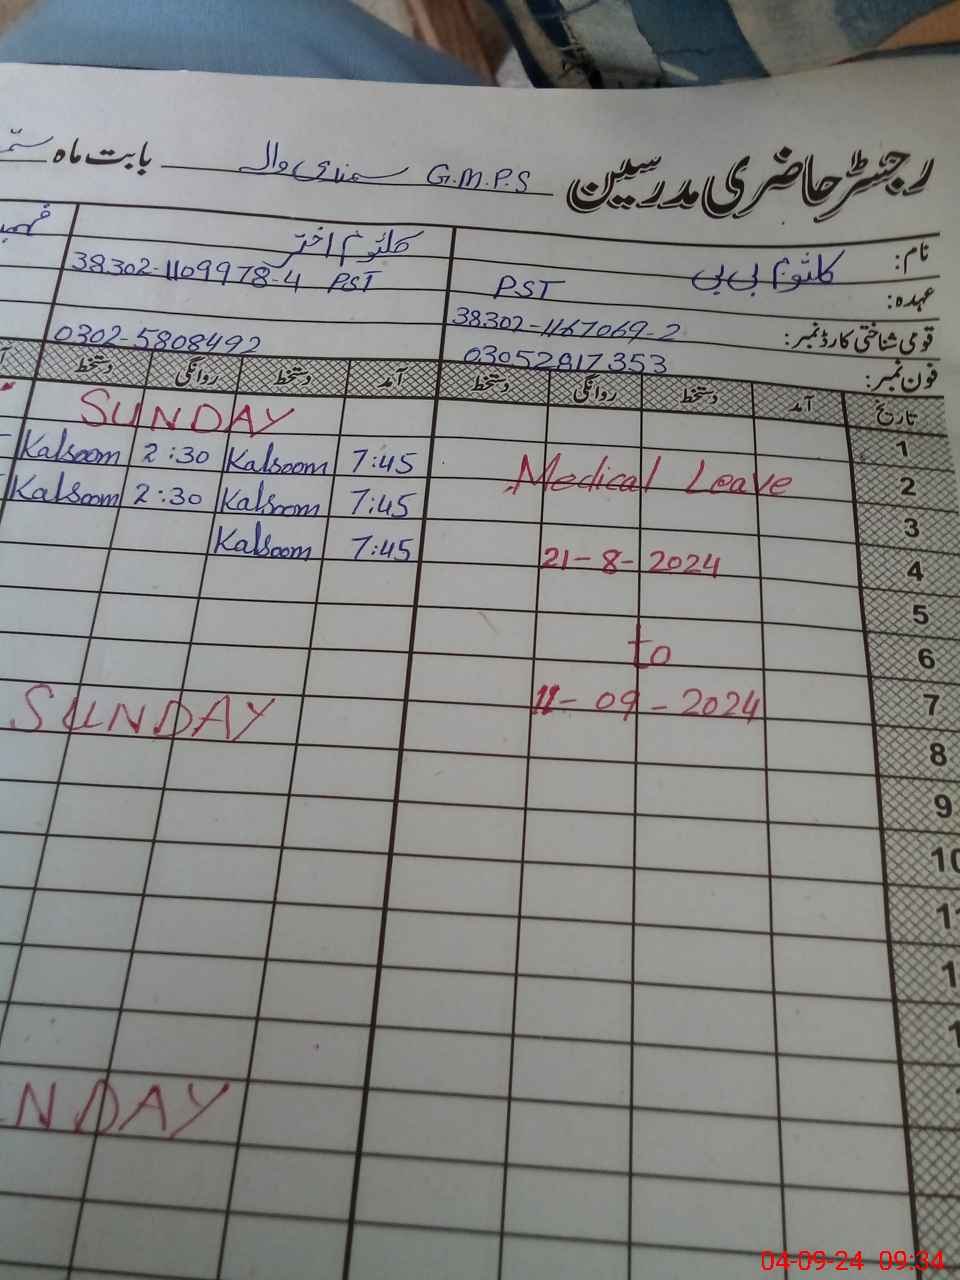 رجسٹر حاضری مدرسین G.M.P.S سمندی والہ بابت ماہ
نام: کلثوم بی بی کلثوم اختر
عہدہ: PST 38302-1109978-4 PST
قومی شناختی کارڈ نمبر: 38302-1167069-2
فون نمبر: 03052817353 0302-5808492
تاریخ آمد دستخط روانگی دستخط آمد دستخط روانگی دستخط
1 SUNDAY
2 Medical Leave 7:45 Kalsoom 2:30 Kalsoom
3 7:45 Kalsoom 2:30 Kalsoom
4 21-8-2024 7:45 Kalsoom
5
6 to
7 11-09-2024
8 SUNDAY
9
10
NDAY
04-09-24 09:34